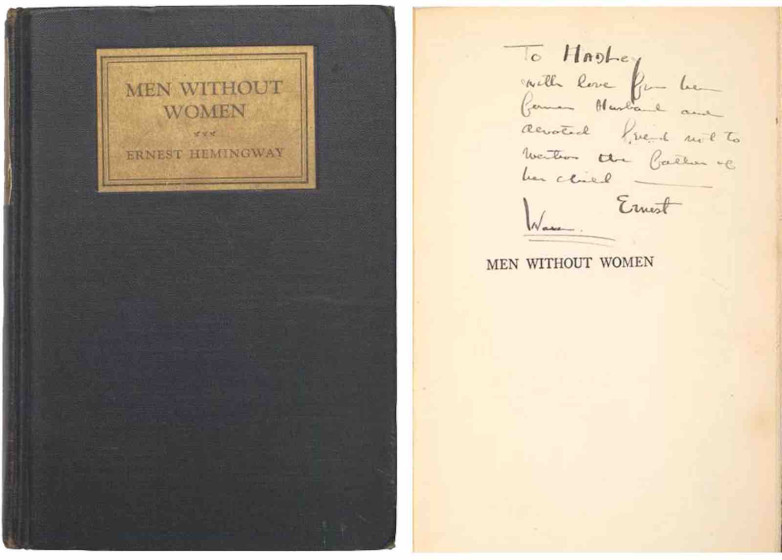 MEN WITHOUT
WOMEN
ERNEST HEMINGWAY
To HADLEY
with love from her
former Husband and
devoted friend not to
mention the father of
her child ———
Ernest
MEN WITHOUT WOMEN